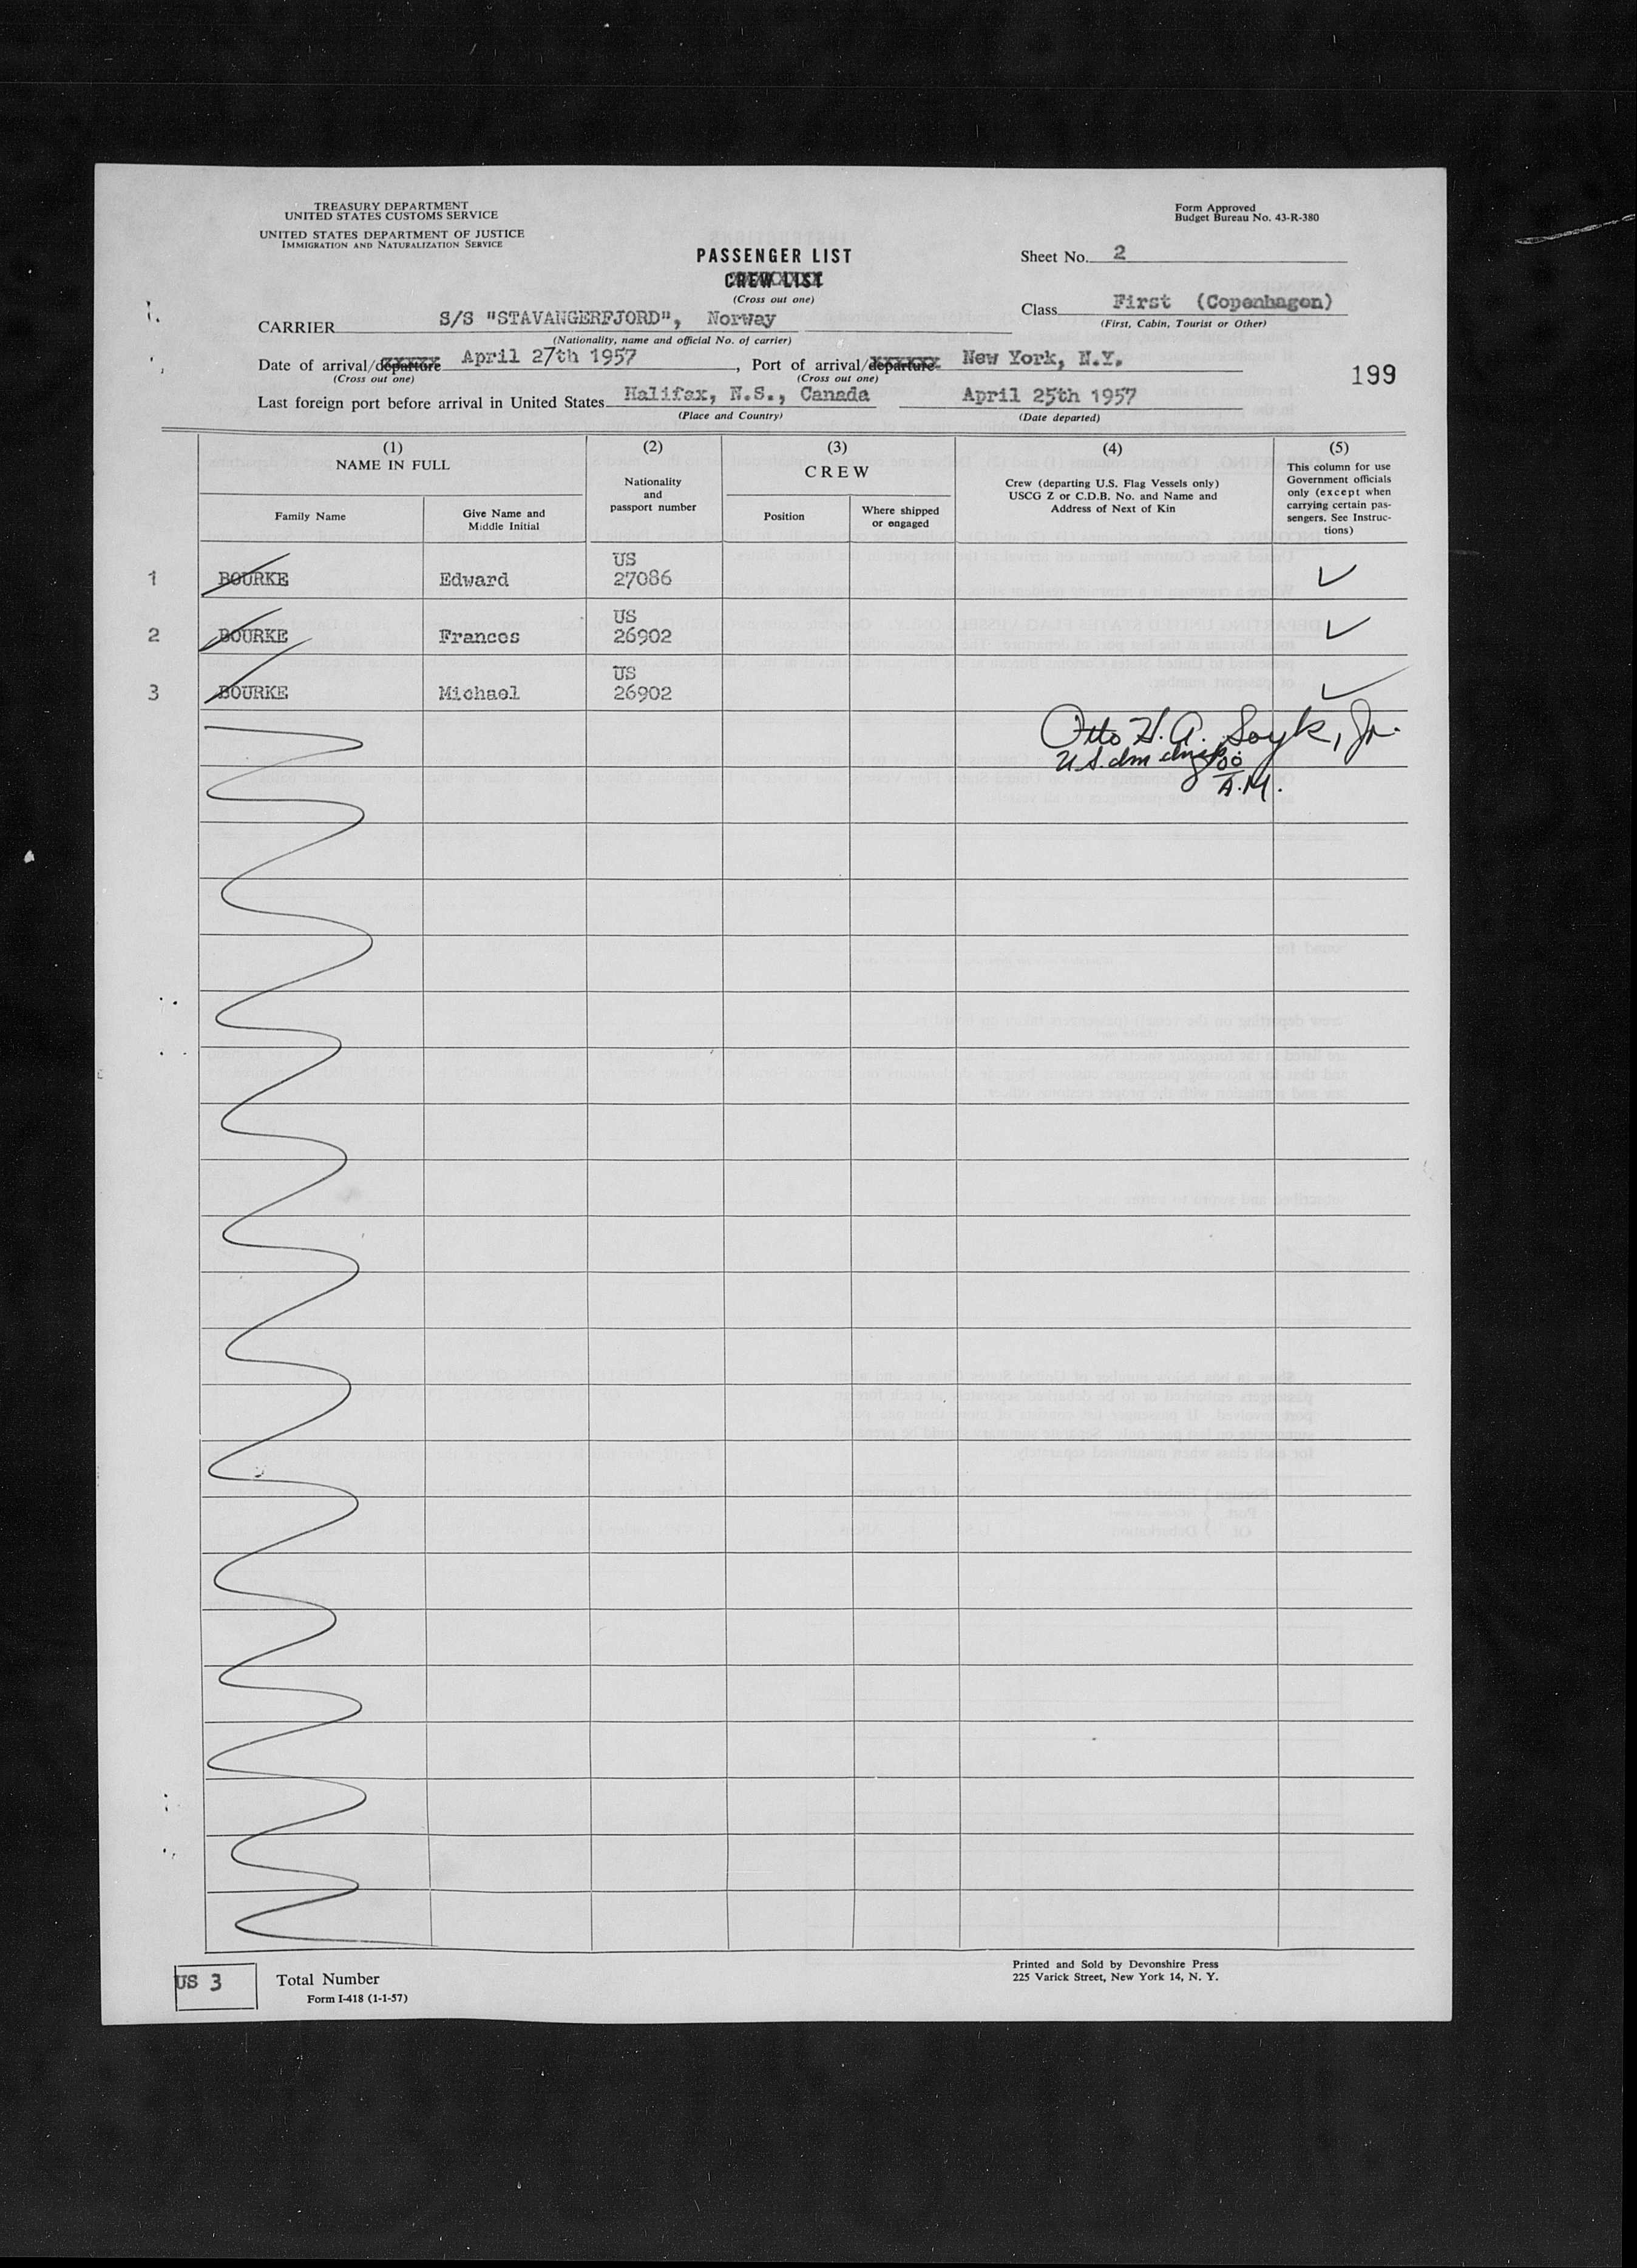 TREASURY DEPARTMENT
UNITED STATES CUSTOMS SERVICE
UNITED STATES DEPARTMENT OF JUSTICE
IMMIGRATION AND NATURALIZATION SERVICE
Form Approved
Budget Bureau No. 43-R-380
PASSENGER LIST
CREW LIST
(Cross out one)
Sheet No. 2
Class First (Copenhagen)
(First, Cabin, Tourist or Other)
CARRIER S/S "STAVANGERFJORD", Norway
(Nationality, name and official No. of carrier)
Date of arrival/departure April 27th 1957, Port of arrival/departure New York, N.Y.
(Cross out one) (Cross out one)
199
Last foreign port before arrival in United States Halifax, N.S., Canada April 25th 1957
(Place and Country) (Date departed)
(1) (2) (3) (4) (5)
NAME IN FULL
Family Name
Give Name and
Middle Initial
Nationality
and
passport number
CREW
Position
Where shipped
or engaged
Crew (departing U.S. Flag Vessels only)
USCG Z or C.D.B. No. and Name and
Address of Next of Kin
This column for use
Government officials
only (except when
carrying certain pas-
sengers. See Instruc-
tions)
US
1 BOURKE Edward 27086
US
2 BOURKE Frances 26902
US
3 BOURKE Michael 26902
Otto H. A. Soyk, Jr.
U.S. Imm
00
A.M.
US 3 Total Number
Form I-418 (1-1-57)
Printed and Sold by Devonshire Press
225 Varick Street, New York 14, N. Y.